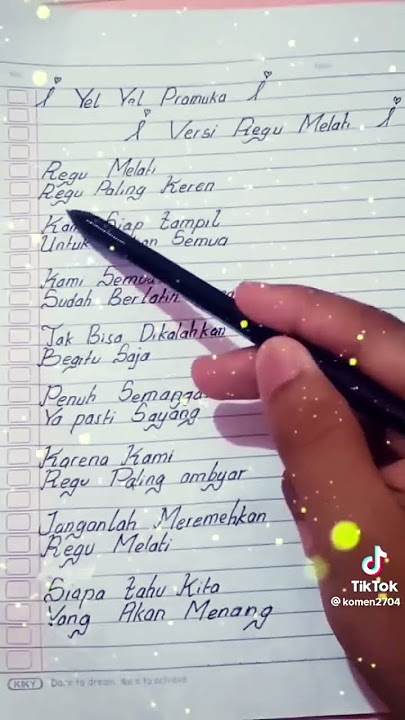 Yel Yel Pramuka
Versi Regu Melati
Regu Melati
Regu Paling Keren
Siap tampil
Semua
Kami Semua
Sudah Berlatih
Tak Bisa Dikalahkan
Begitu Saja
Penuh
Ya pasti Sayang
Karena Kami
Regu Paling ambyar
Janganlah Meremehkan
Regu Melati
Siapa tahu Kita
Yang Akan Menang
TikTok
@komen2704
KIKY Dare to dream, dare to achieve